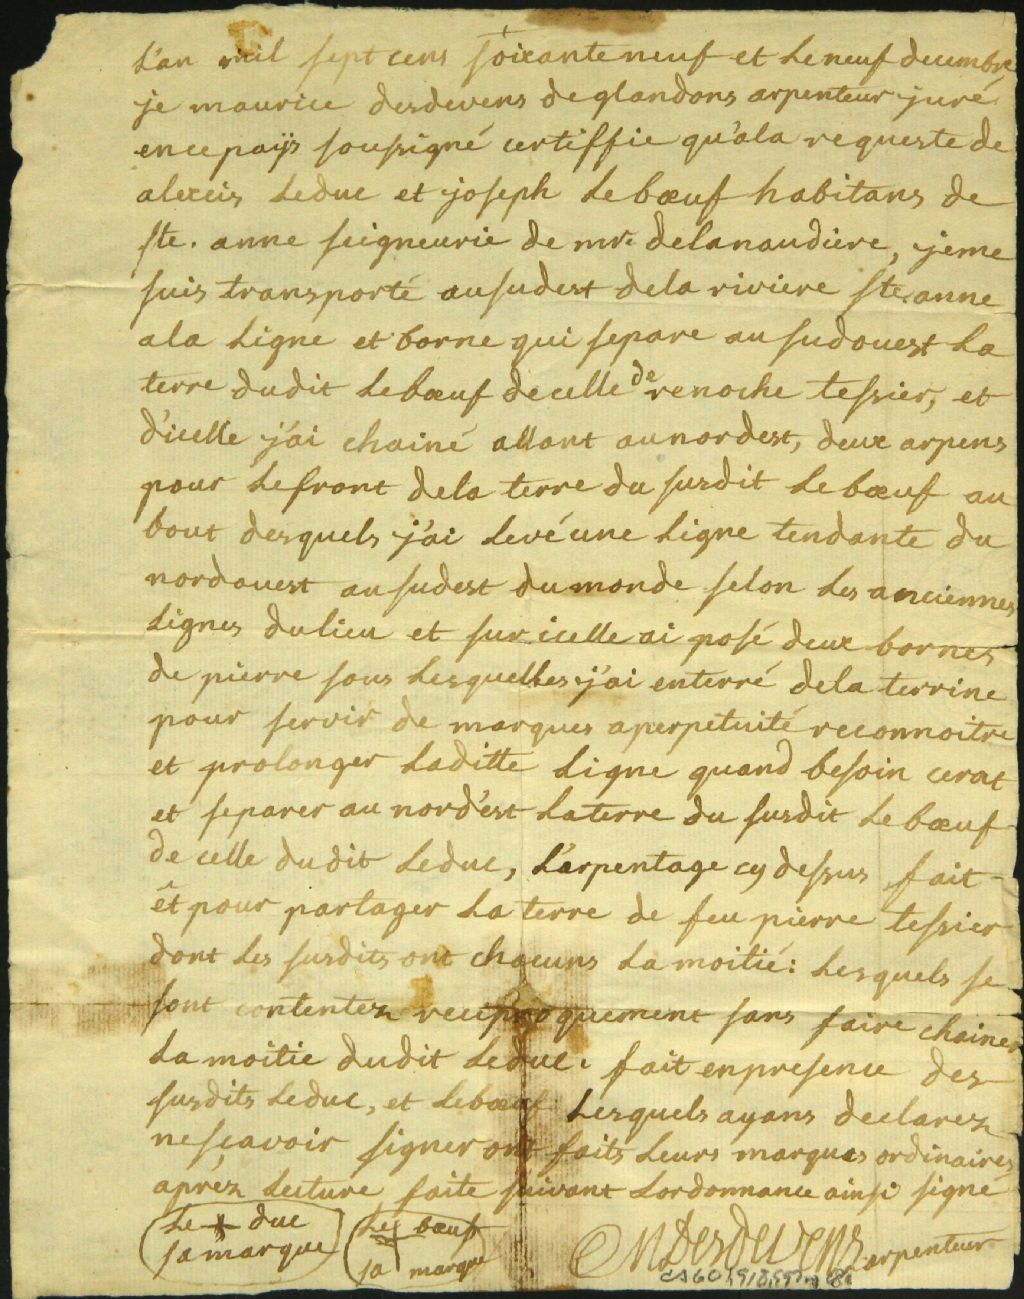 L'an mil sept cens soixante neuf et le neuf decembre
je maurice desdevens de glandons arpenteur juré
en ce païs soussigné certiffie qu'a la requeste de
alexis Leduc et joseph Lebœuf habitans de
ste. anne seigneurie de mr. delanaudiere, je me
suis transporté au sudest de la riviere ste. anne
a la Ligne et borne qui separe au sudouest La
terre dudit Lebœuf de celle de renoche tessier, et
d'icelle j'ai chainé allant au nordest, deux arpens
pour Le front de la terre du susdit Lebœuf au
bout desquels j'ai Levé une Ligne tendante du
nordouest au sudest du monde selon Les anciennes
Lignes du lieu et sur icelle ai posé deux bornes
de pierre sous Lesquelles j'ai enterré de la terrine
pour servir de marques a perpetuité reconnoitre
et prolonger Laditte Ligne quand besoin cerat
et separer au nord'est La terre du susdit Lebœuf
de celle dudit Leduc, L'arpentage cy dessus fait
êt pour partager La terre de feu pierre tessier
dont Les susdits ont chacuns La moitié: Lesquels se
sont contentez reciproquement sans faire chainer
La moitie dudit Leduc. fait en presence des
susdits Leduc, et Lebœuf Lesquels ayans declarez
ne sçavoir signer ont faits Leurs marques ordinaires
apréz Lecture faite suivant L'ordonnance ainsi signé
Le + duc Le + bœuf
sa marque sa marque
M Desdevens arpenteur